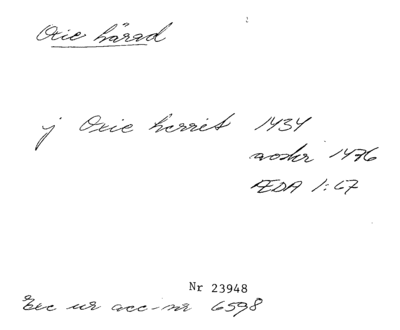 Oxie härad
j Oxie herrit 1434
avskr 1476
ÆDA 1:67
Nr 23948
Exc ur acc-nr 6598